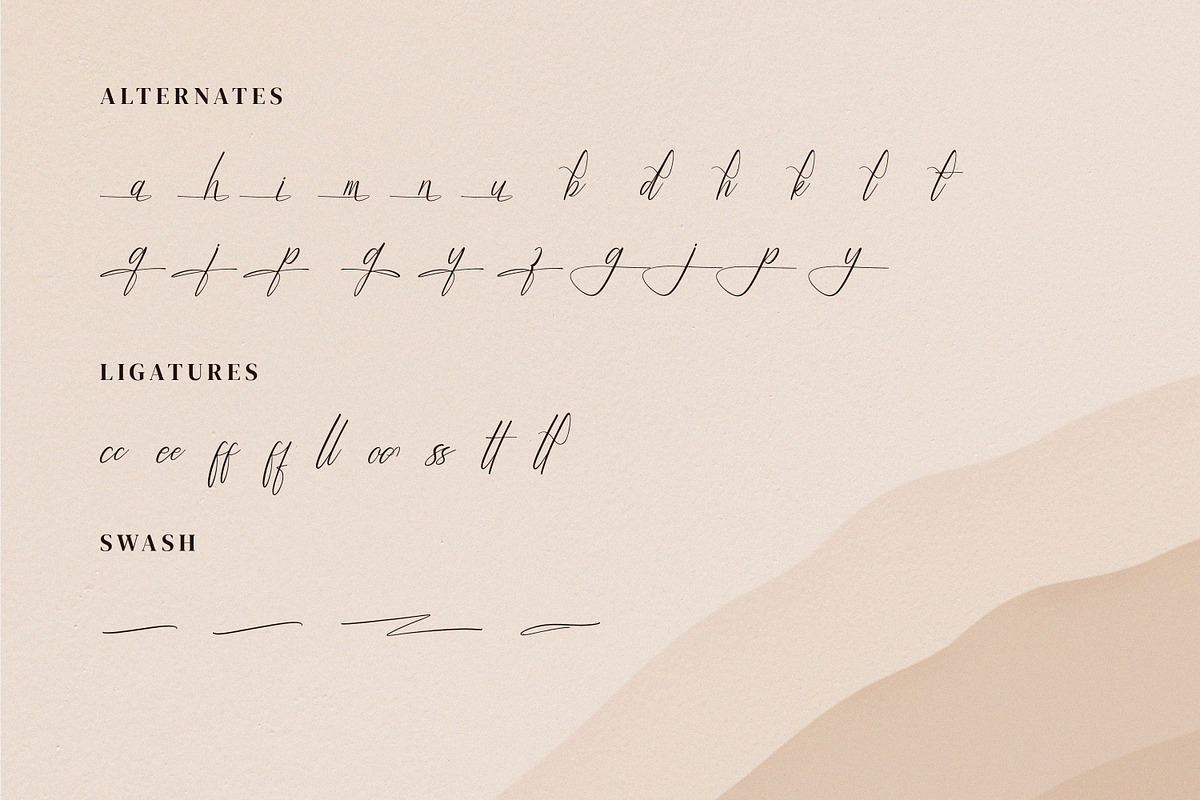 ALTERNATES
a h i m n u b d h k l t
g j p g y z g j p y
LIGATURES
cc ee ff ff ll oo ss tt tl
SWASH